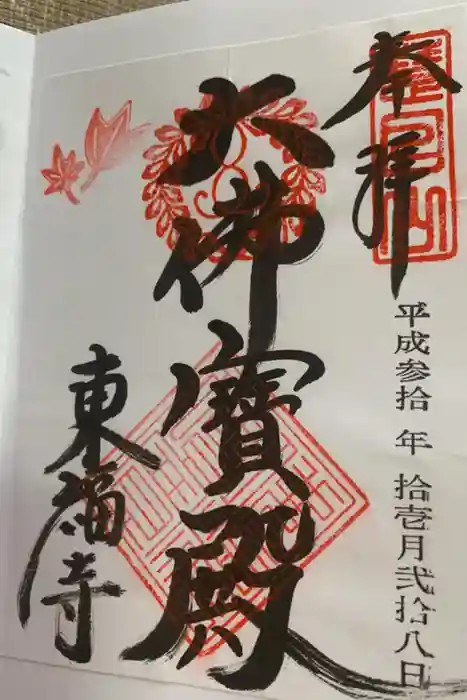 奉拝
平成参拾年拾壱月弐拾八日
大佛寶殿
東福寺